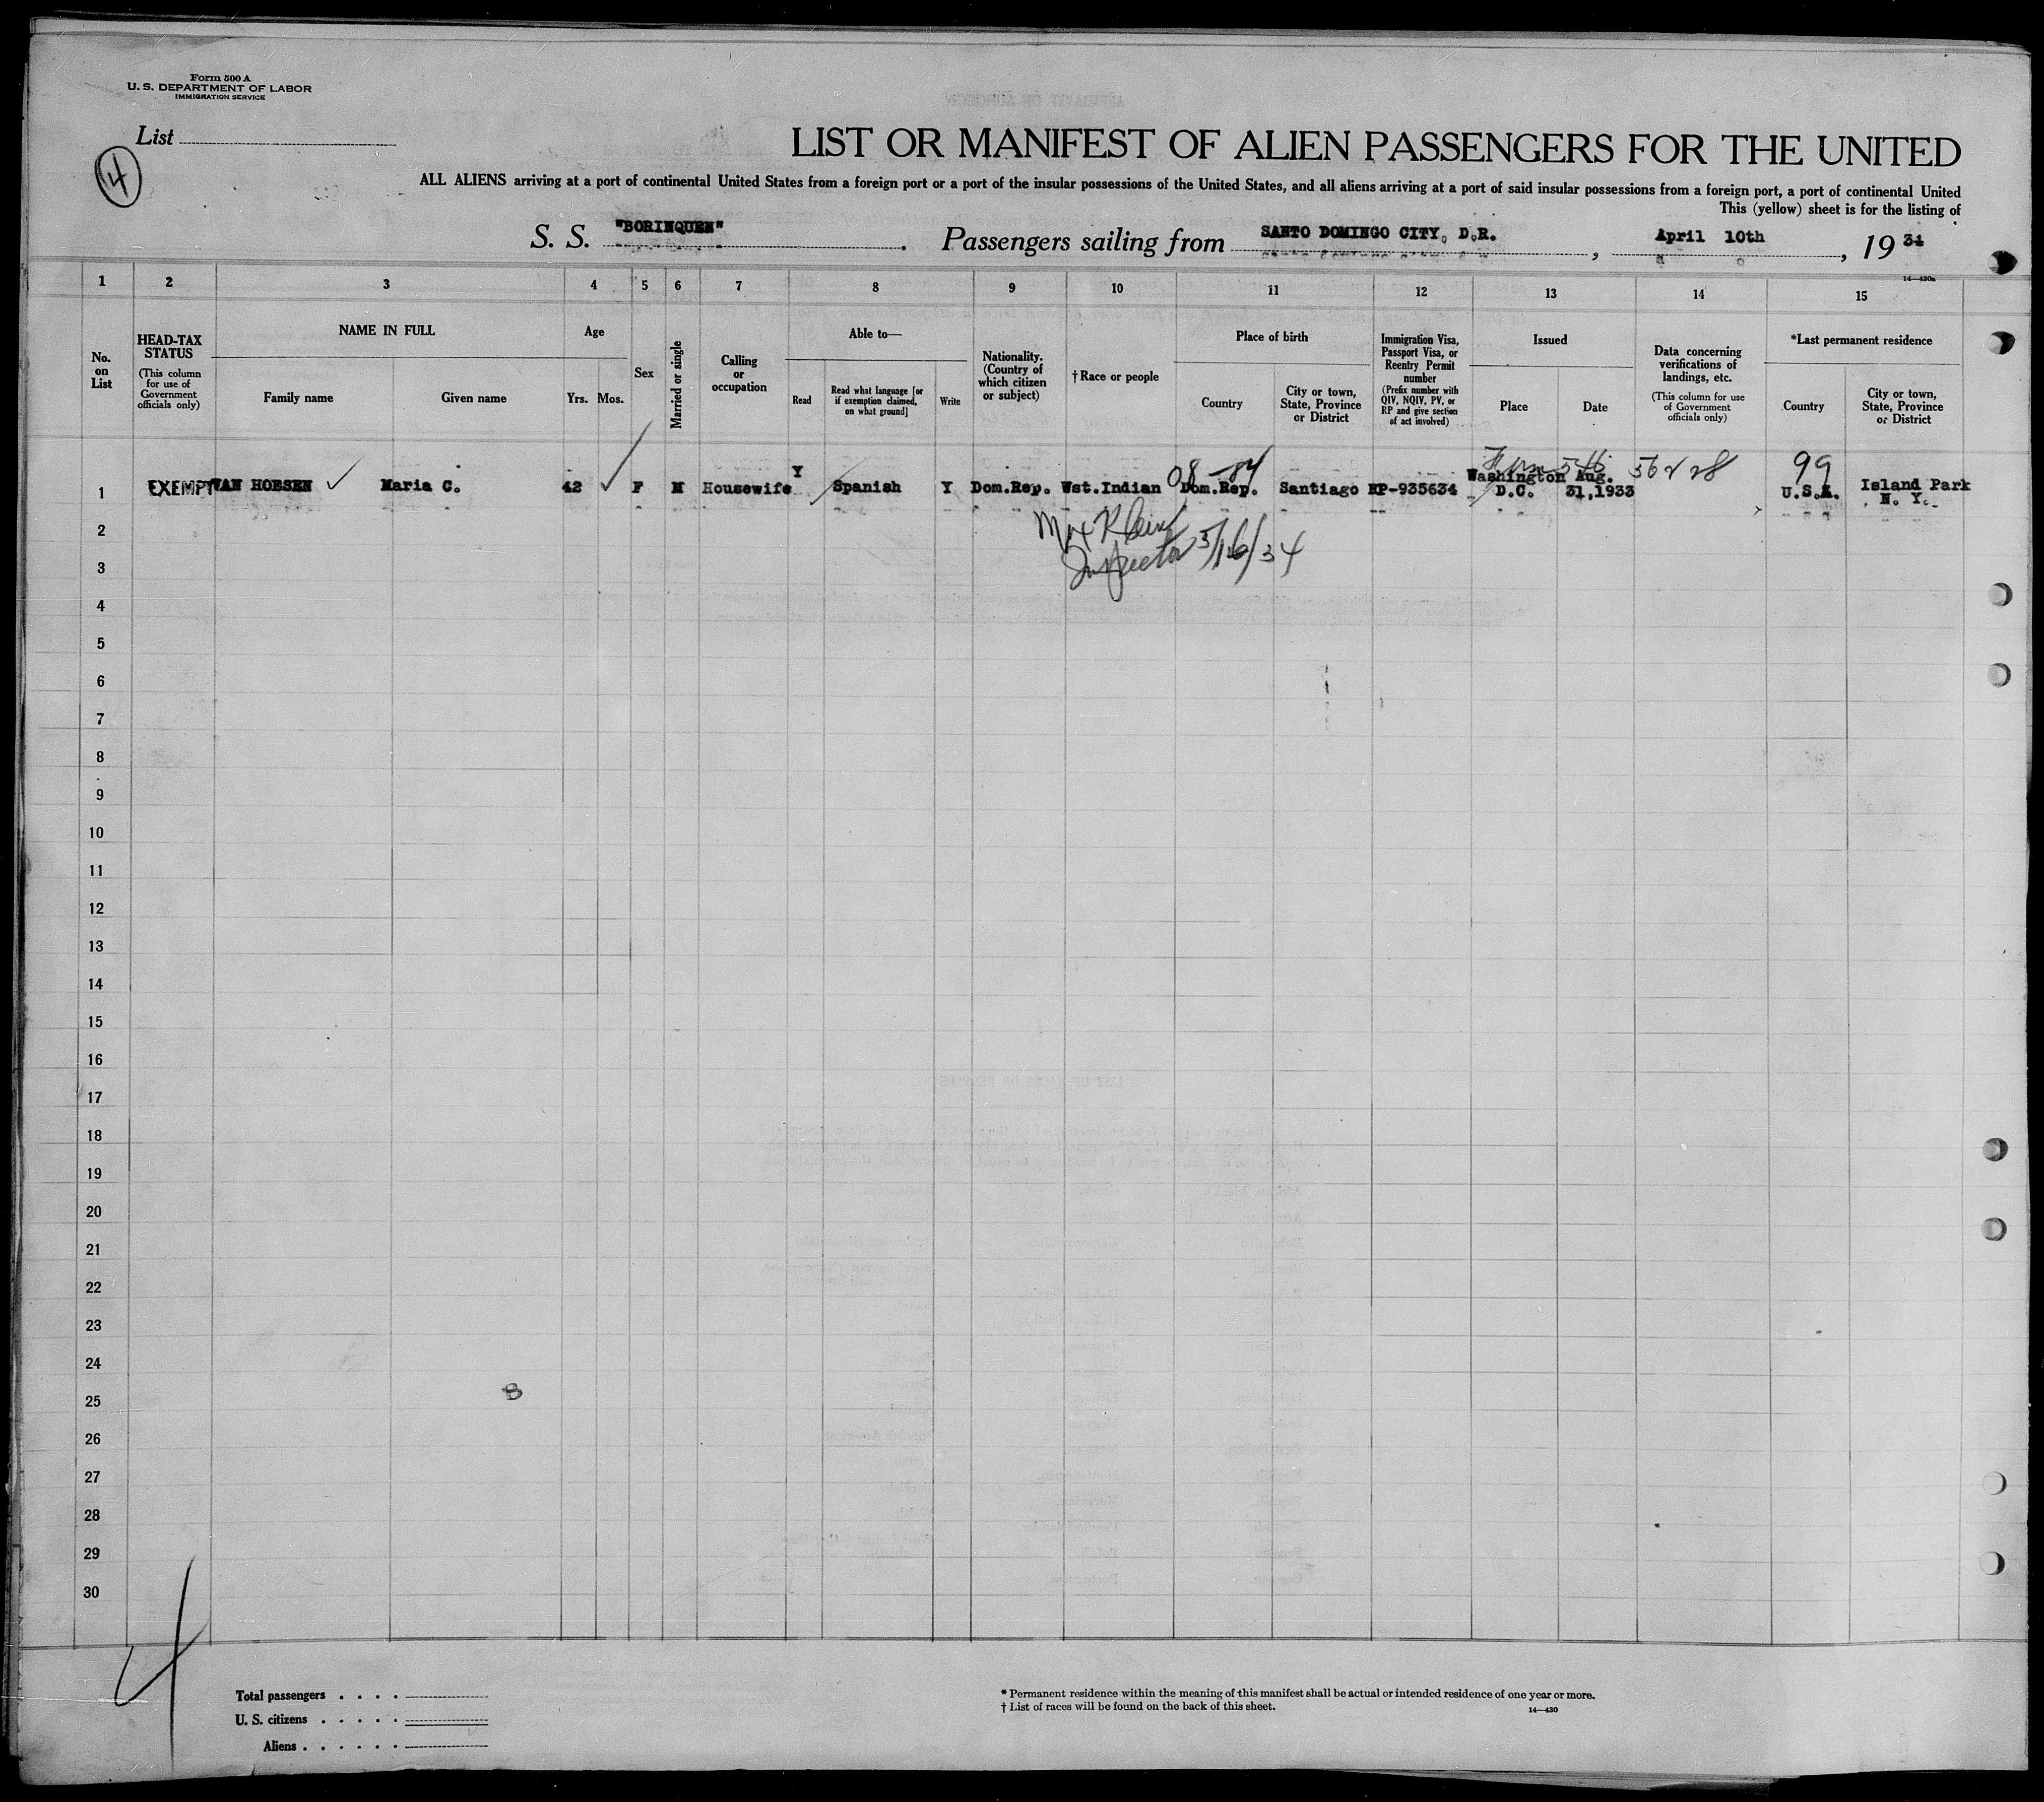 Form 500 A
U. S. DEPARTMENT OF LABOR
IMMIGRATION SERVICE
List
4
LIST OR MANIFEST OF ALIEN PASSENGERS FOR THE UNITED
ALL ALIENS arriving at a port of continental United States from a foreign port or a port of the insular possessions of the United States, and all aliens arriving at a port of said insular possessions from a foreign port, a port of continental United
This (yellow) sheet is for the listing of
S. S. "BORINQUEN". Passengers sailing from SANTO DOMINGO CITY, D.R., April 10th, 19 34
14—430a
1 2 3 4 5 6 7 8 9 10 11 12 13 14 15
No. on List
HEAD-TAX STATUS
(This column for use of Government officials only)
NAME IN FULL
Family name
Given name
Age
Yrs. Mos.
Sex
Married or single
Calling or occupation
Able to—
Read
Read what language [or if exemption claimed, on what ground]
Write
Nationality. (Country of which citizen or subject)
† Race or people
Place of birth
Country
City or town, State, Province or District
Immigration Visa, Passport Visa, or Reentry Permit number
(Prefix number with QIV, NQIV, PV, or RP and give section of act involved)
Issued
Place
Date
Data concerning verifications of landings, etc.
(This column for use of Government officials only)
*Last permanent residence
Country
City or town, State, Province or District
08-84 99
1 EXEMPT VAN HOESEN Maria C. 42 F M Housewife Y Spanish Y Dom.Rep. Wst.Indian Dom.Rep. Santiago RP-935634 Washington D.C. Aug. 31,1933 U.S.A. Island Park N. Y.
Max Klein
Inspector 5/16/34
2
3
4
5
6
7
8
9
10
11
12
13
14
15
16
17
18
19
20
21
22
23
24
8
25
26
27
28
29
30
4
Total passengers . . . .
U. S. citizens . . . . .
Aliens . . . . . .
* Permanent residence within the meaning of this manifest shall be actual or intended residence of one year or more.
† List of races will be found on the back of this sheet.
14—430